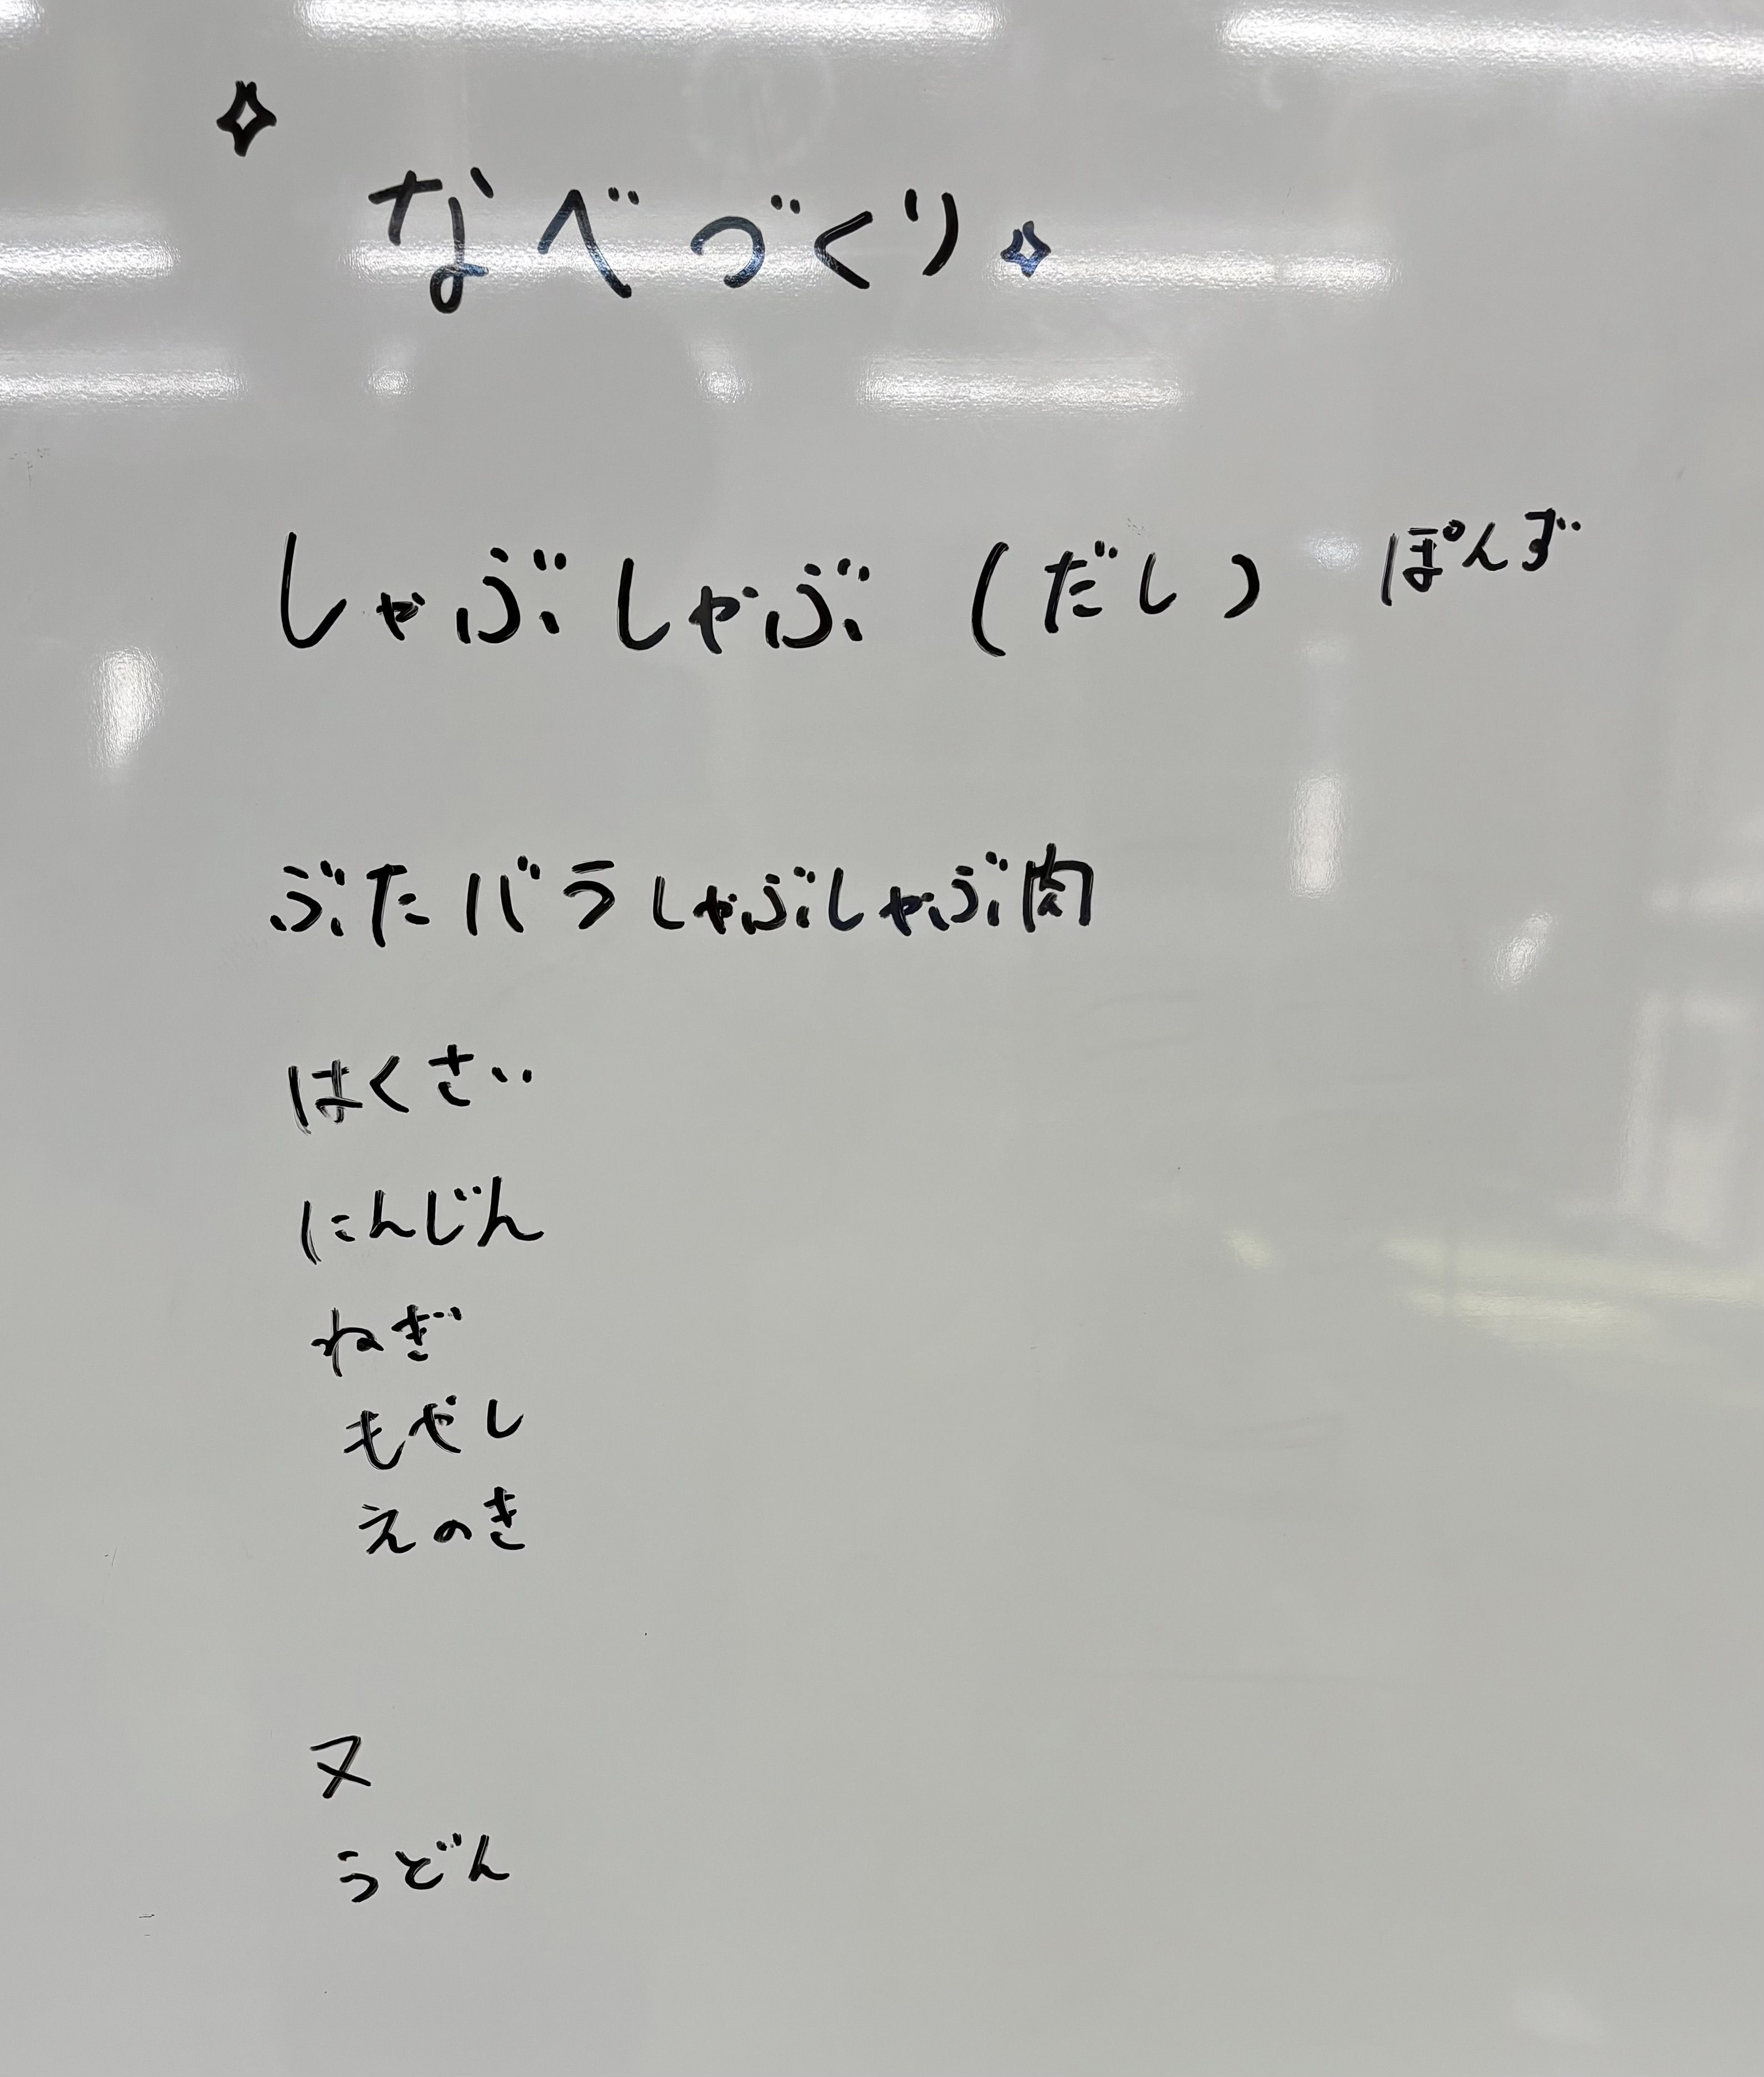 ✧
なべづくり✧
しゃぶしゃぶ (だし) ぽんず
ぶたバラしゃぶしゃぶ肉
はくさい
にんじん
ねぎ
もやし
えのき
〆
うどん